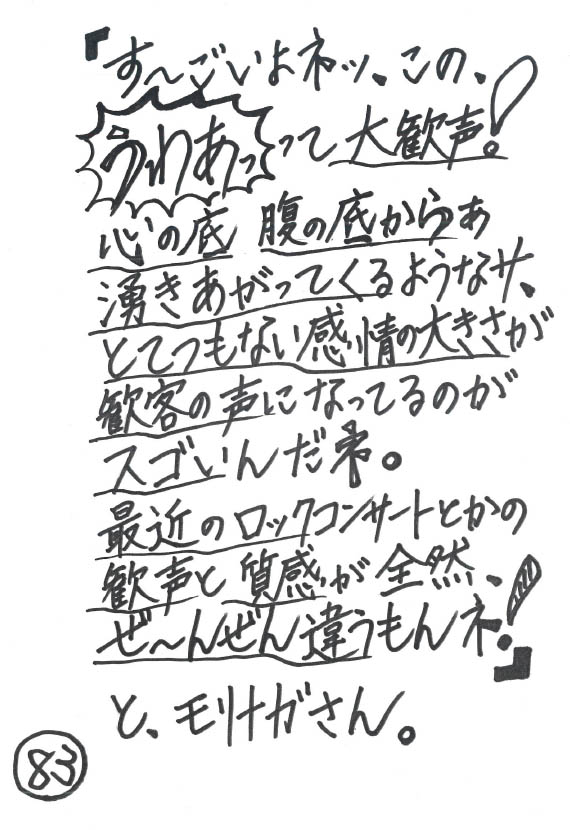 『す〜ごいよネッ、この、
うわあっって大歓声!。
心の底 腹の底からぁ
湧きあがってくるようなサ、
とてつもない感情の大きさが
歓客の声になってるのが
スゴいんだネ。
最近のロックコンサートとかの
歓声と質感が全然、
ぜ〜んぜん違うもんネ!。』
と、モリナガさん。
83